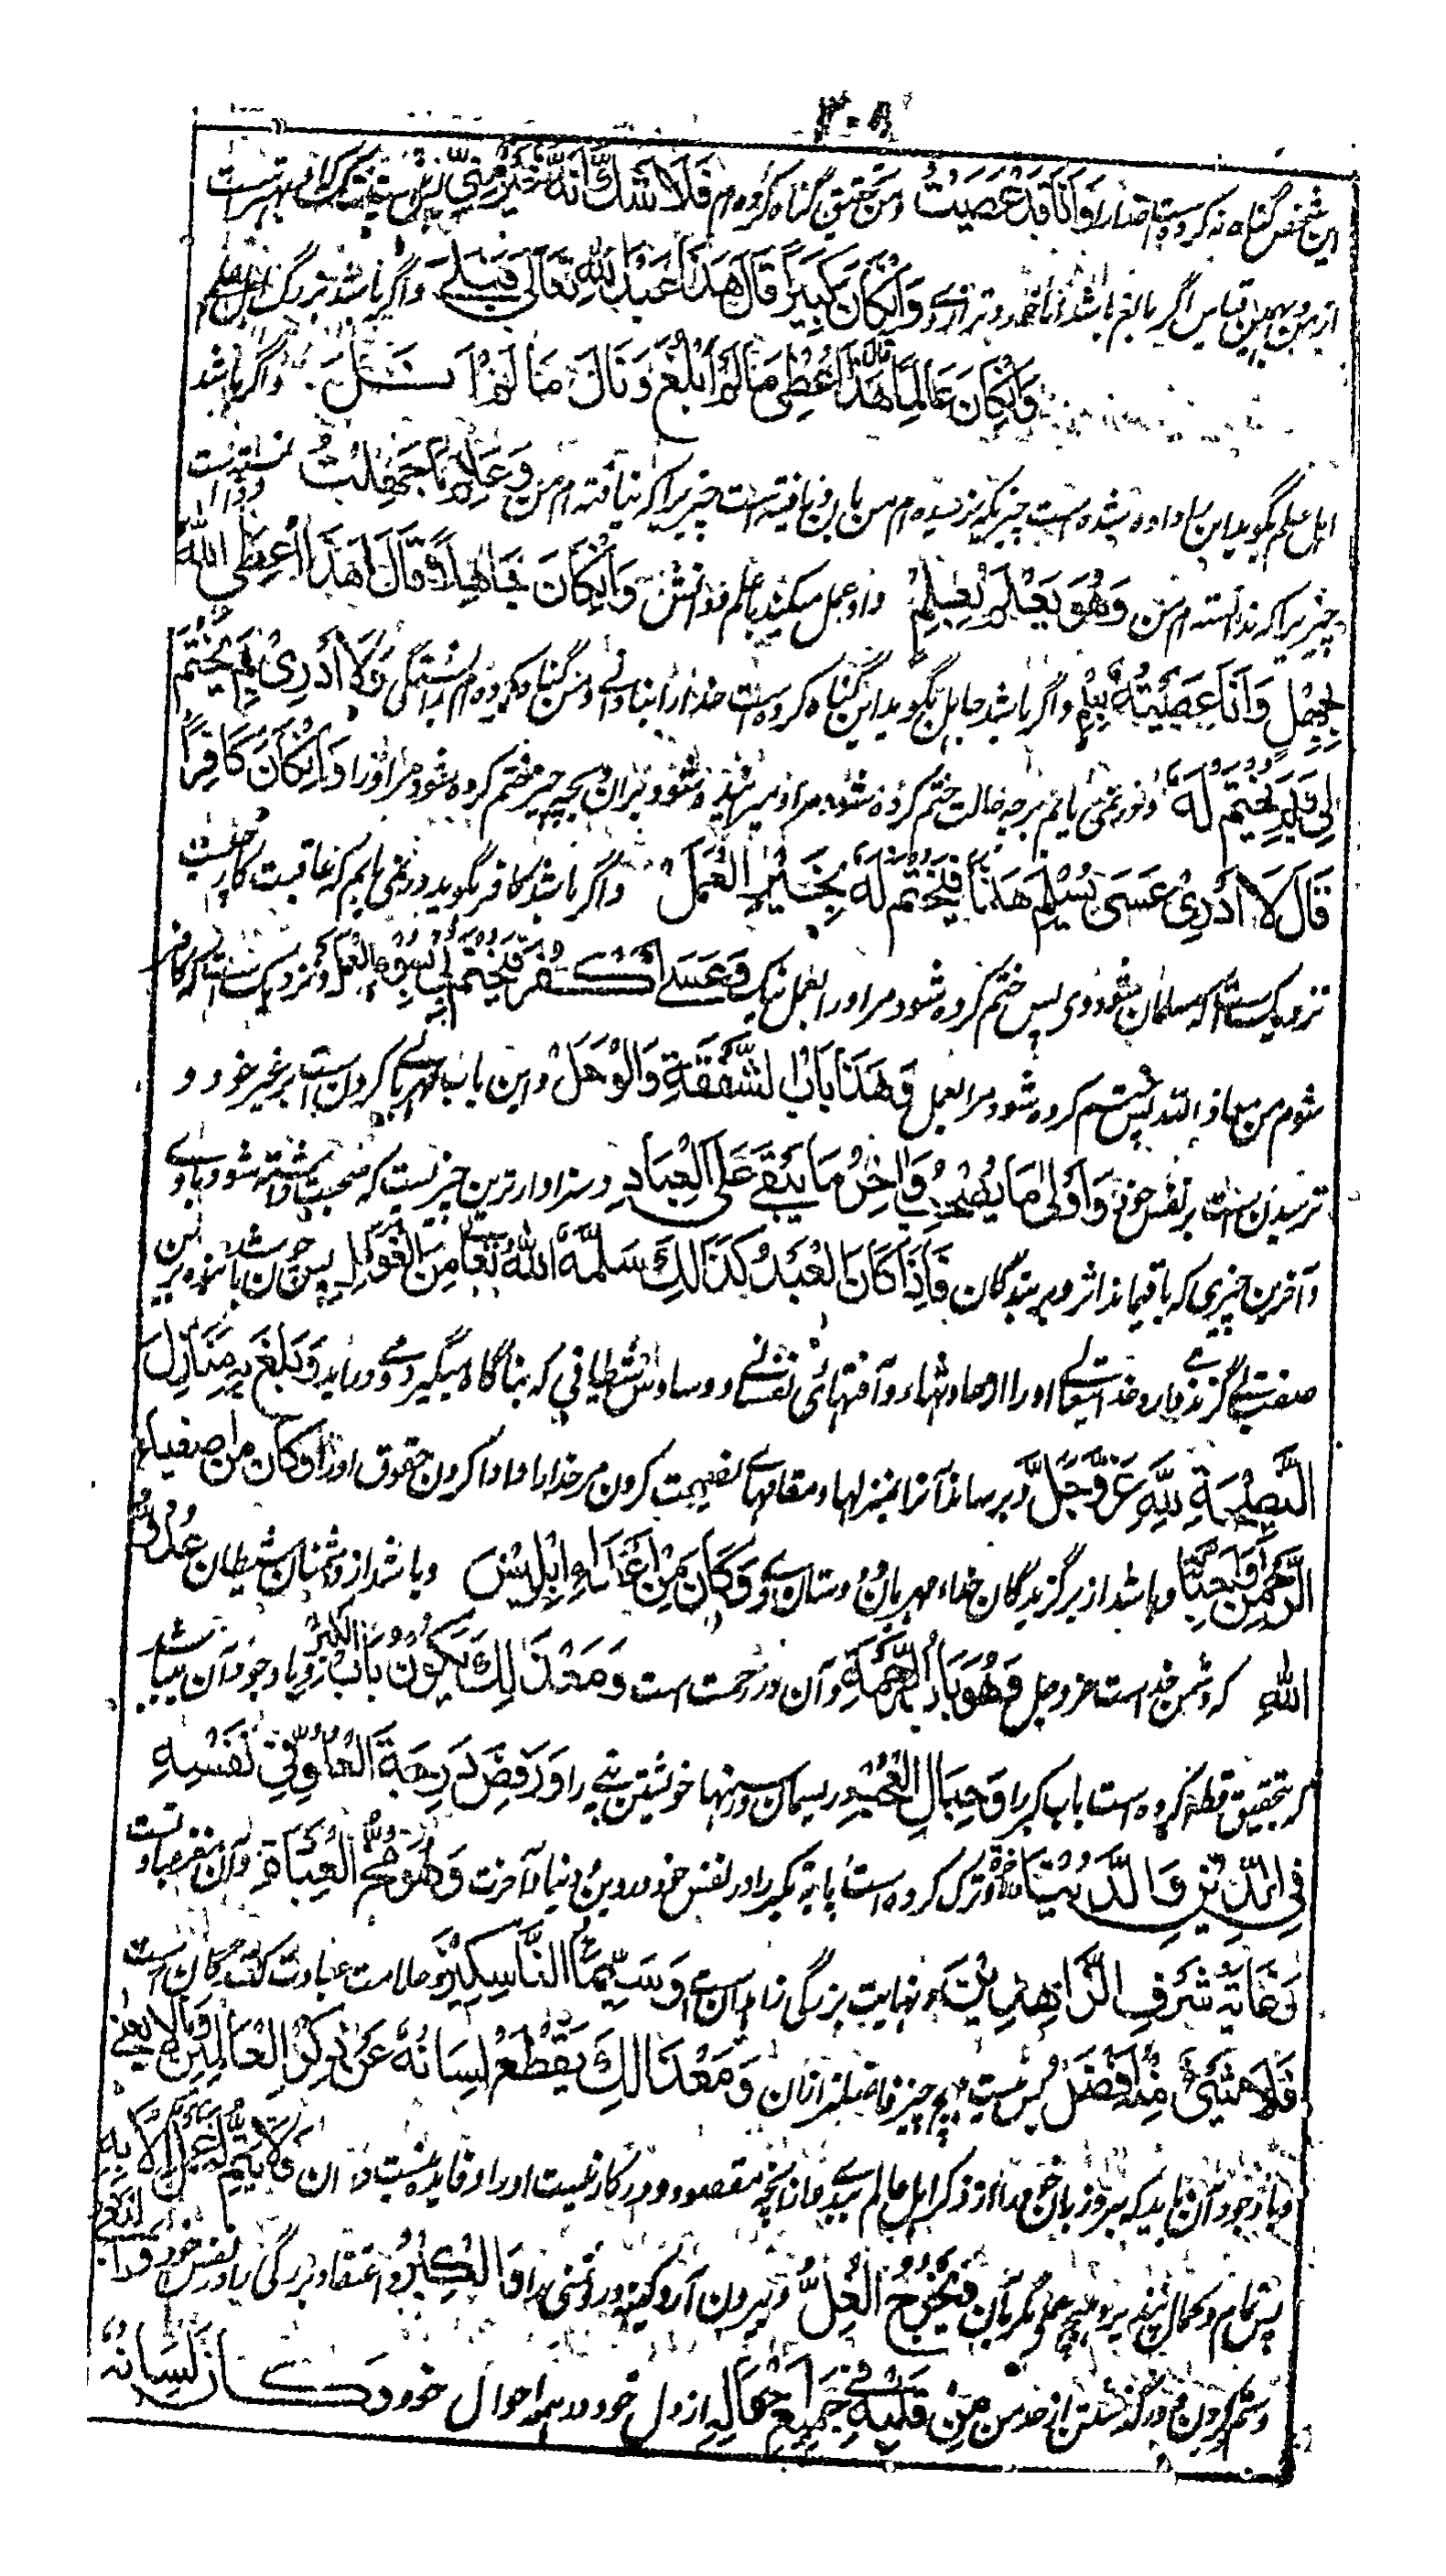 ٣٠٨
این شخص گناه نکرده است خدا را وَاَنَا قَدْ عَصَیْتُ و من بتحقیق گناه کرده ام فَلَا اَشُكُّ اَنَّهٗ خَیْرٌ مِنِّیْ پس شک نیست که او بهتر است
از من و بهمین قیاس اگر بالغ باشد وَاِنْ كَانَ كَبِیْرًا قَالَ هٰذَا عَبَدَ اللّٰهَ تَعَالٰی قَبْلِیْ و اگر باشد بزرگ
وَاِنْ كَانَ عَالِمًا قَالَ هٰذَا اُعْطِیَ مَا لَمْ اَبْلُغْ وَنَالَ مَا لَمْ اَنَلْ و اگر باشد
اهل علم بگوید این را داده شده است چیزیکه نرسیده ام من بآن و یافته است چیزیرا که نیافته ام من وَعَلِمَ مَا جَهِلْتُ و دانسته است
چیزیرا که ندانسته ام من وَهُوَ یَعْمَلُ بِعِلْمٍ و او عمل میکند بعلم و دانش وَاِنْ كَانَ جَاهِلًا قَالَ هٰذَا عَصَی اللّٰهَ
بِجَهْلٍ وَاَنَا عَصَیْتُهٗ بِعِلْمٍ و اگر باشد جاهل بگوید این گناه کرده است خدا را بنادانی و من گناه کرده ام بدانستگی وَلَا اَدْرِیْ بِمَ یُخْتَمُ
لِیْ وَبِمَ یُخْتَمُ لَهٗ و نمی یابم بر چه حالت ختم کرده شود مرا و بچه چیز ختم کرده شود مر او را وَاِنْ كَانَ كَافِرًا
قَالَ لَا اَدْرِیْ عَسٰی یُسْلِمُ هٰذَا فَیُخْتَمُ لَهٗ بِخَیْرِ الْعَمَلِ و اگر باشد کافر بگوید در نمی یابم که عاقبت کار چیست
نزدیک است که مسلمان شود وی پس ختم کرده شود مر او را بعمل نیک وَعَسٰی اَكْفُرُ فَیُخْتَمُ لِیْ بِسُوْءِ الْعَمَلِ و نزدیک است که کافر
شوم من معاذ الله پس ختم کرده شود مرا بعمل وَهٰذَا بَابُ الشَّفَقَةِ وَالْوَجَلِ و این باب مهربانی کردن است بر غیر خود و
ترسیدن است بر نفس خود وَاَوْلٰی مَا یُصْحَبُ وَاٰخِرُ مَا یَبْقٰی عَلَی الْعِبَادِ و سزاوارترین چیزیست که صحبت داشته شود با وی
و آخرین چیزی که باقیماند اثر وی بر بندگان فَاِذَا كَانَ الْعَبْدُ كَذٰلِكَ سَلَّمَهُ اللّٰهُ تَعَالٰی مِنَ الْغَوَائِلِ پس چون باشد بنده برین
صفت بی گزند دارد خدایتعالی او را از حادثها و آفتهائی نفسانی و وساوس شیطانی که بناگاه میگیرد وَبَلَغَ بِهٖ مَنَازِلَ
النَّصِیْحَةِ لِلّٰهِ عَزَّ وَجَلَّ و برساند آنرا بمنزلها و مقامهای نصیحت کردن مر خدا را و ادا کردن حقوق او را وَكَانَ مِنْ اَصْفِیَاءِ
الرَّحْمٰنِ وَاَحِبَّائِهٖ و باشد از برگزیدگان خدای مهربان و دوستان وی وَكَانَ مِنْ اَعْدَاءِ اِبْلِیْسَ و باشد از دشمنان شیطان عَدُوِّ
اللّٰهِ که دشمن خدا است عز و جل وَهُوَ بَابُ الرَّحْمَةِ و آن در رحمت است وَمَعَ ذٰلِكَ یَكُوْنُ بَابُ الْكِبْرِ و با وجود آن میباشد
که بتحقیق قطع کرده است باب کبر را وَحِبَالَ الْعُجْبِ و ریسمان خویشتن بینی را وَرَفَضَ دَرَجَةَ الْعُلُوِّ فِیْ نَفْسِهٖ
فِی الدِّیْنِ وَالدُّنْیَا وَالْاٰخِرَةِ و ترک کرده است پایه تکبر را در نفس خود در دین و دنیا و آخرت وَهُوَ مُخُّ الْعِبَادَةِ و آن مغز عبادت است
وَغَایَةُ شَرَفِ الزَّاهِدِیْنَ و نهایت بزرگی زاهدان است وَسِیْمَا النَّاسِكِیْنَ و علامت عبادت کنندگان است
فَلَا شَیْءَ مِنْهُ اَفْضَلُ پس نیست هیچ چیز فاضلتر از آن وَمَعَ ذٰلِكَ یَقْطَعُ لِسَانَهٗ عَنْ ذِكْرِ الْعَالَمِیْنَ وَمَا لَا یَعْنِیْ
و با وجود آن باید که ببرد زبان خود را از ذکر اهل عالم و از آنچه مقصود و در کار نیست او را و فایده نیست در آن وَلَا یَتِمُّ لَهٗ عَمَلٌ اِلَّا بِهٖ
پس تمام و کمال نپذیرد هیچ عملی مگر بآن وَیُخْرِجُ الْغِلَّ و بیرون آرد کینه و دشمنی را وَالْكِبْرَ و اعتقاد بزرگی را در نفس خود وَالْبَغْیَ
و ستم کردن و درگذشتن از حد مِنْ قَلْبِهٖ فِیْ جَمِیْعِ اَحْوَالِهٖ از دل خود در همه احوال خود وَكَانَ لِسَانُهٗ